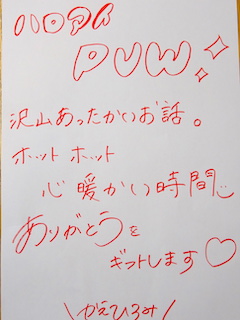 沢山あったかいお話。
ホット ホット
心暖かい時間
ありがとうを
ギフトします♡
\かえひろみ/